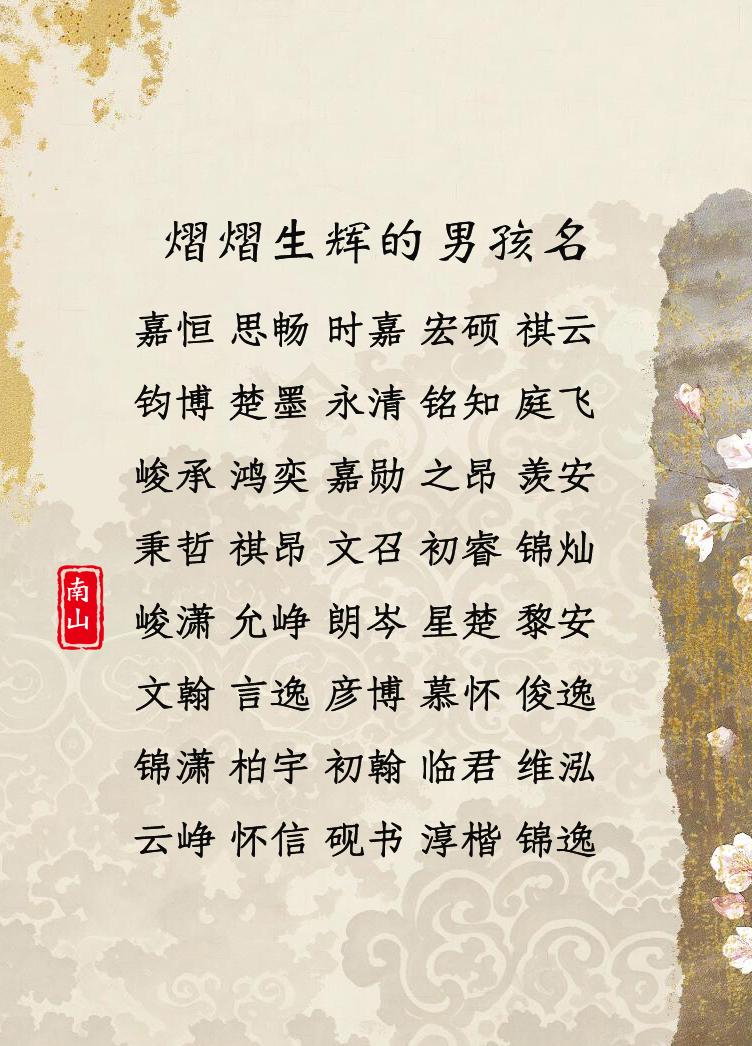 熠熠生辉的男孩名
嘉恒 思畅 时嘉 宏硕 祺云
钧博 楚墨 永清 铭知 庭飞
峻承 鸿奕 嘉勋 之昂 羡安
秉哲 祺昂 文召 初睿 锦灿
峻潇 允峥 朗岑 星楚 黎安
文翰 言逸 彦博 慕怀 俊逸
锦潇 柏宇 初翰 临君 维泓
云峥 怀信 砚书 淳楷 锦逸
南山